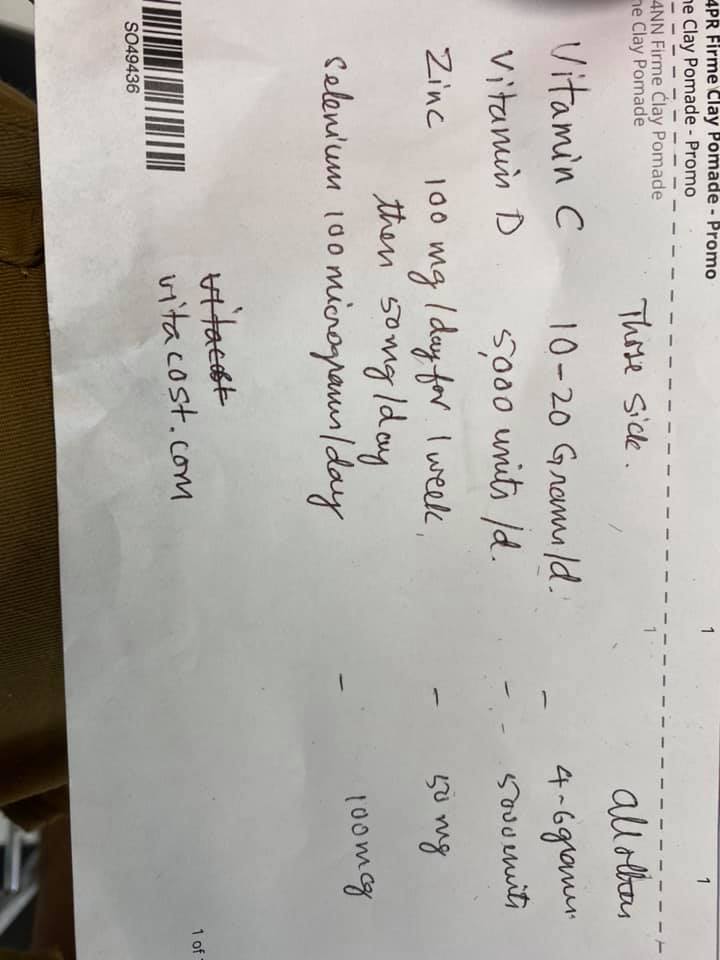 4PR Firme Clay Pomade - Promo 1 1
ne Clay Pomade - Promo
4NN Firme Clay Pomade 1
ne Clay Pomade
Those sick. all others
Vitamin C 10-20 Grams/d. - 4-6 grams
Vitamin D 5,000 units/d. - - 5000 units
Zinc 100 mg/day for 1 week, - 50 mg
then 50 mg/day
Selenium 100 micrograms/day - 100 mcg
vitacost
vitacost.com
SO49436
1 of